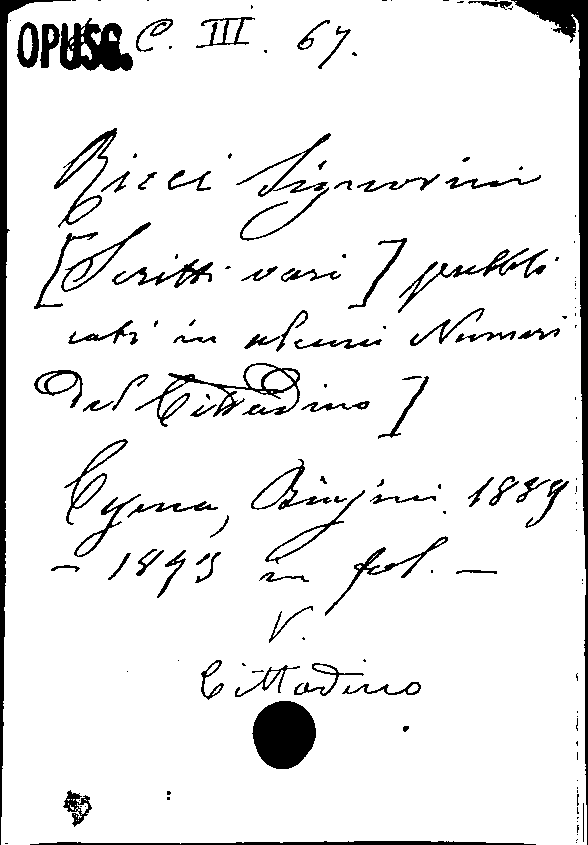 OPUSC. C. III. 67.
Ricci Signorini
[Scritti vari] pubbli
cati in alcuni Numeri
del Cittadino]
Cesena, Biasini. 1889
- 1893 in fol. -
V.
Cittadino